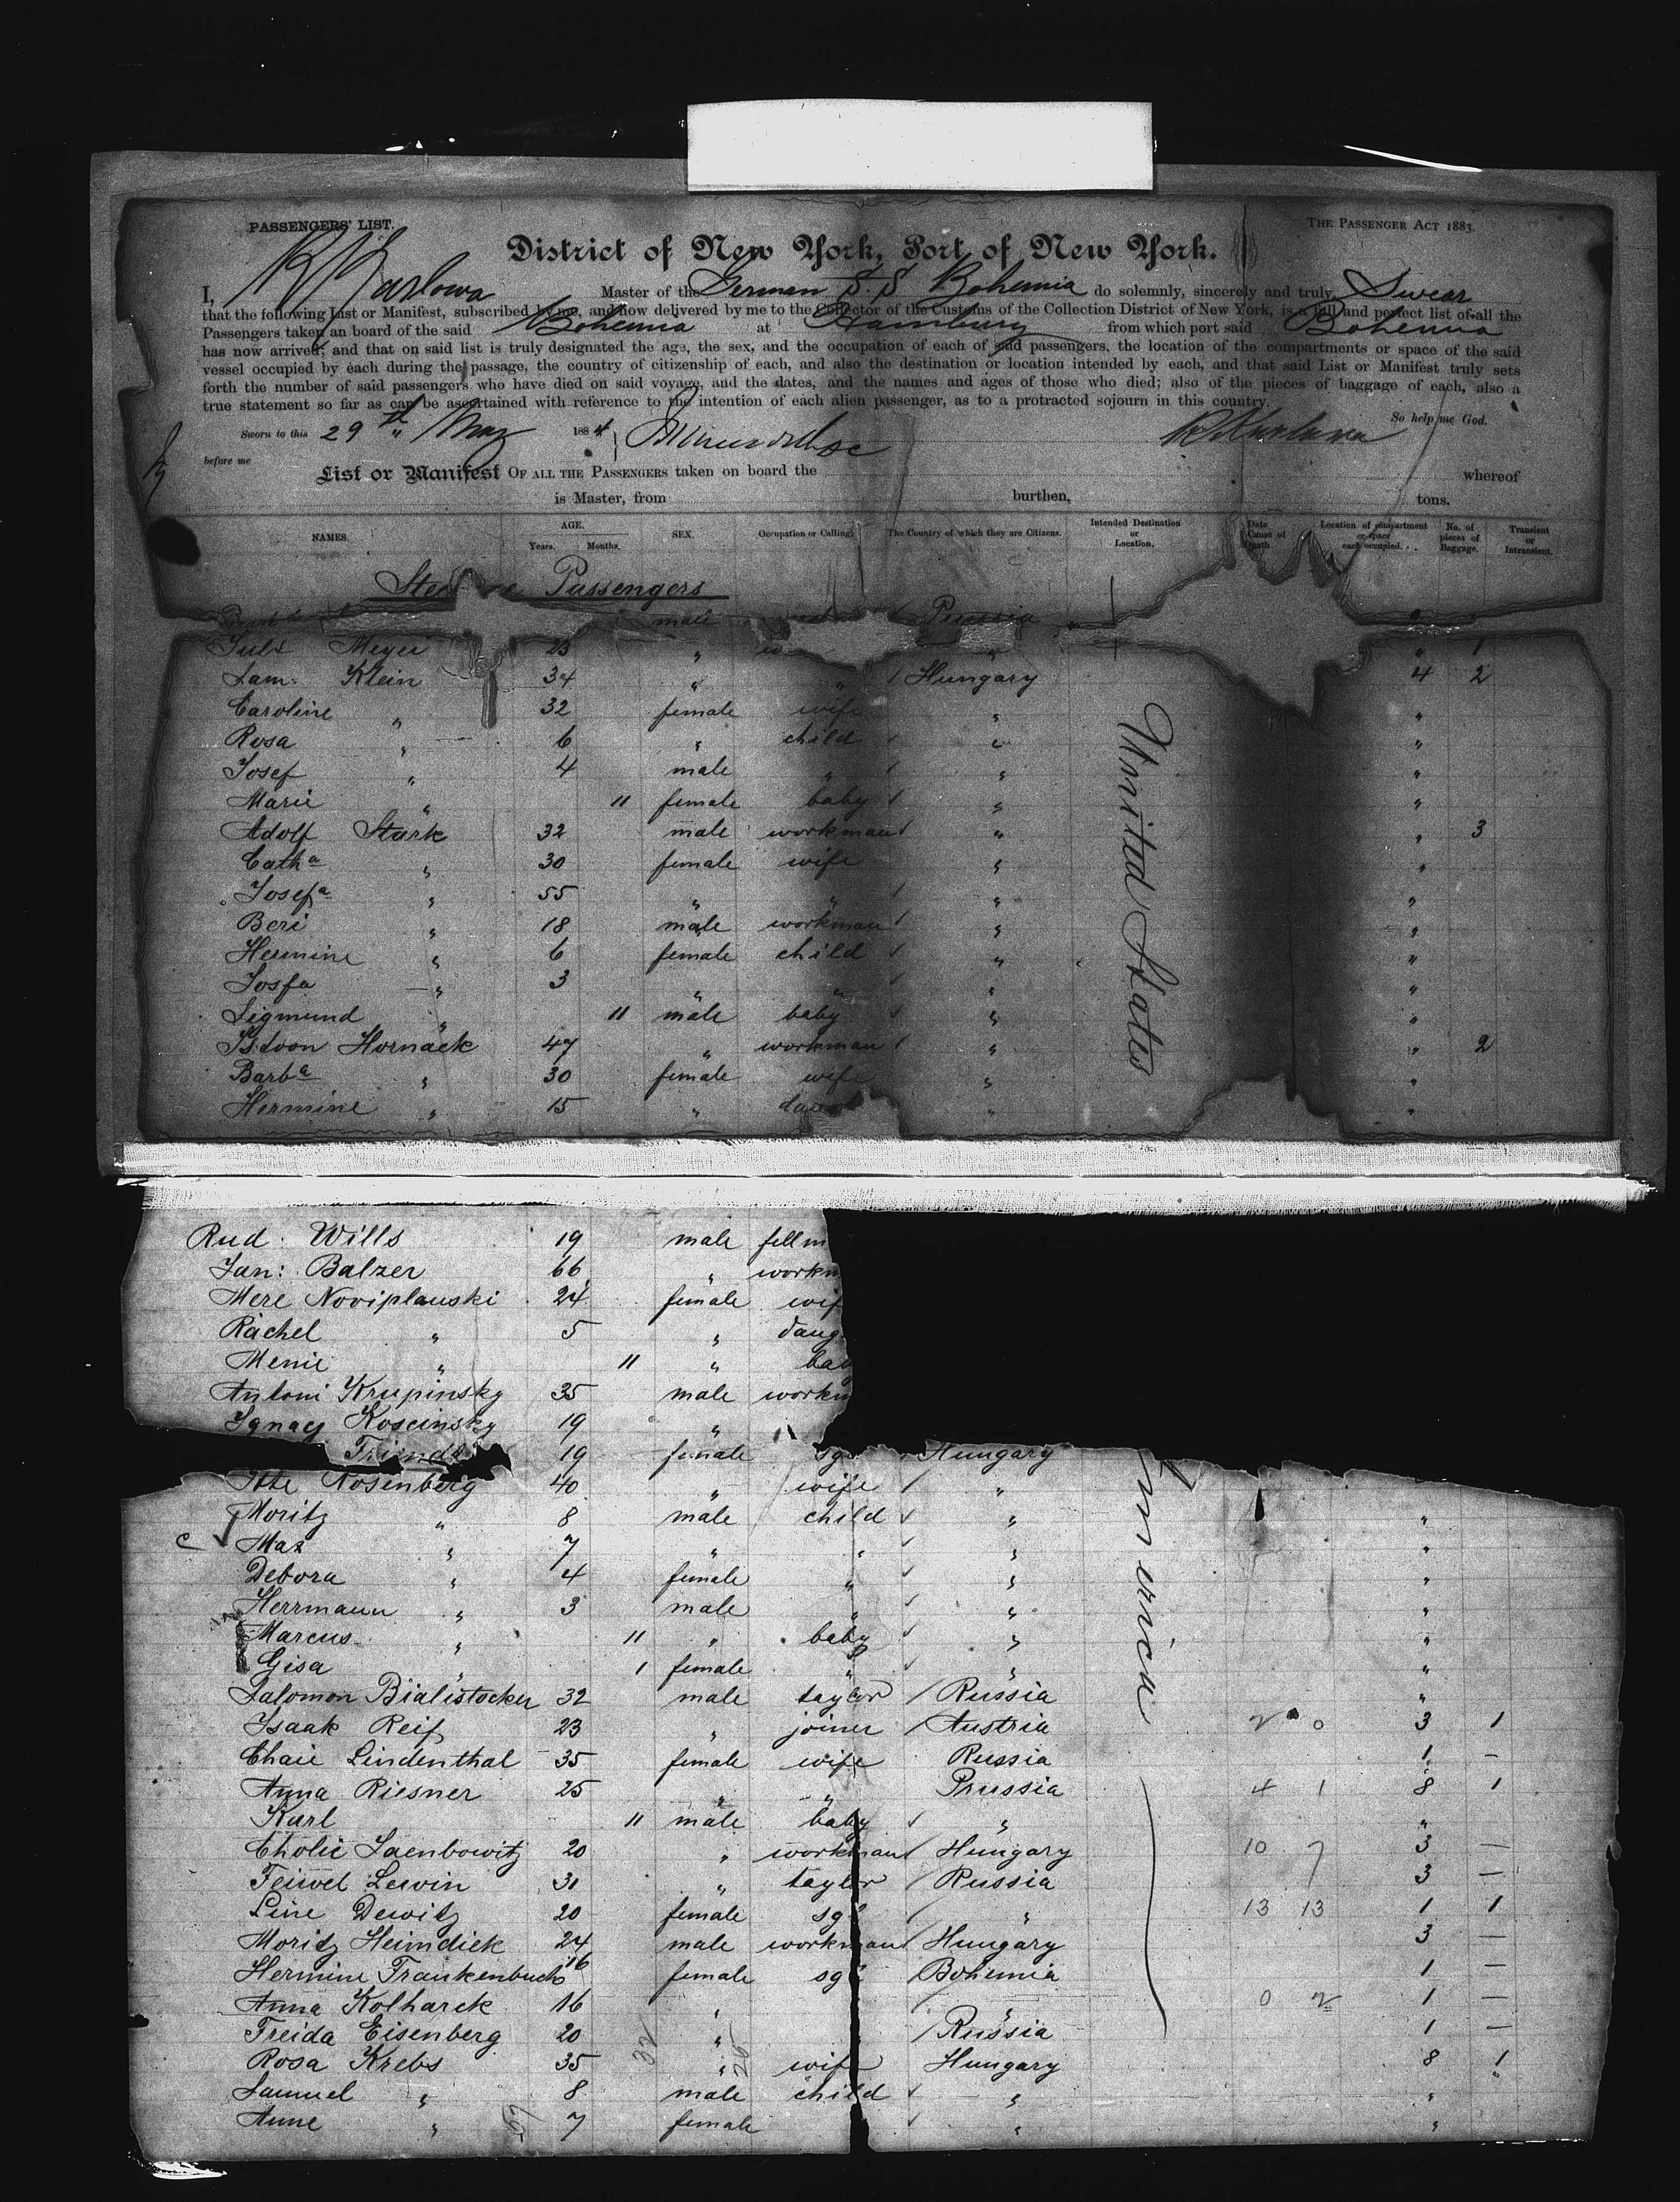 PASSENGERS' LIST. THE PASSENGER ACT 1883.
District of New York, Port of New York.
I, R Karlowa Master of the German S.S Bohemia do solemnly, sincerely and truly Swear
that the following List or Manifest, subscribed by me, and now delivered by me to the Collector of the Customs of the Collection District of New York, is a full and perfect list of all the
Passengers taken on board of the said Bohemia at Hamburg from which port said Bohemia
has now arrived; and that on said list is truly designated the age, the sex, and the occupation of each of said passengers, the location of the compartments or space of the said
vessel occupied by each during the passage, the country of citizenship of each, and also the destination or location intended by each, and that said List or Manifest truly sets
forth the number of said passengers who have died on said voyage, and the dates, and the names and ages of those who died; also of the pieces of baggage of each, also a
true statement so far as can be ascertained with reference to the intention of each alien passenger, as to a protracted sojourn in this country.
So help me God.
Sworn to this 29th May 1884 R Karlowa
before me
List or Manifest OF ALL THE PASSENGERS taken on board the whereof
is Master, from burthen, tons.
NAMES. AGE. Years. Months. SEX. Occupation or Calling. The Country of which they are Citizens. Intended Destination or Location. Date Cause of Death. Location of compartment or space each occupied. No. of pieces of Baggage. Transient or Intransient.
Passengers
male Prussia "
Meyer 23 " " " 1
Sam: Klein 34 " " / Hungary 4 2
Caroline " 32 female wife " "
Rosa " 6 " child / " "
Josef " 4 male " / " "
Marie " 11 female baby / " "
Adolf Stark 32 male workman / " " 3
Catha " 30 female wife " "
Josefa " 55 " " / " "
Beri " 18 male workman / " "
Hermine " 6 female child / " "
Josfa " 3 " " / " "
Sigmund " 11 male baby / " "
Hornack 47 " workman / " " 2
Barba " 30 female wife " "
Hermine " 15 " " "
United States
Rud: Wills 19 male
Jan: Balzer 66 " workm
Mere Noviplauski 24 female wif
Rachel " 5 " daug
Menie " 11 " bab
Antoni Krupinsky 35 male workm
Ignacy Koscinsky 19 "
19 female sgl Hungary
Rosenberg 40 " wife / "
Moritz " 8 male child ✓ " "
Max " 7 " " ✓ " "
Debora " 4 female " ✓ " "
Herrmann " 3 male " ✓ " "
Marcus " 11 " baby ✓ " "
Gisa " 1 female " ✓ " "
Salomon Bialistocker 32 male taylor / Russia "
Isaak Reif 23 " joiner / Austria 2 0 3 1
Chaie Lindenthal 35 female wife Russia 1 –
Anna Riesner 25 " " Prussia 4 1 8 1
Karl 11 male baby ✓ " "
Cholie Jaenbowitz 20 " workman / Hungary 10 7 3 –
Feiwel Lewin 31 " taylor / Russia 3 –
Line Dewitz 20 female sgl / " 13 13 1 1
Moritz Heimdiek 24 male workman / Hungary 3 –
Hermine Frankenbusch 16 female sgl / Bohemia 1 –
Anna Kolharek 16 " / " 0 2 1 –
Freida Eisenberg 20 " / Russia 1 –
Rosa Krebs 35 " wife Hungary 8 1
Samuel " 8 male child ✓ " "
Anne " 7 female ✓ " "
32 25
57